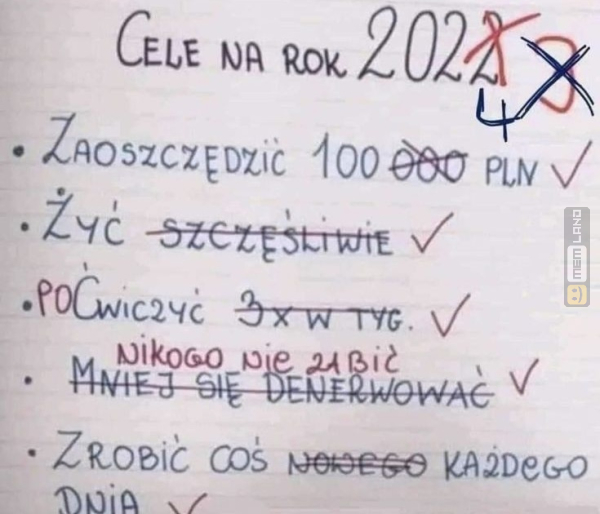 CELE NA ROK 2022 3 4
• ZAOSZCZĘDZIĆ 100 000 PLN ✓
• ŻYĆ SZCZĘŚLIWIE ✓
• POĆWICZYĆ 3 X W TYG. ✓
NIKOGO NIE ZABIĆ
• MNIEJ SIĘ DENERWOWAĆ ✓
• ZROBIĆ COŚ NOWEGO KAŻDEGO
DNIA ✓
MEM LAND